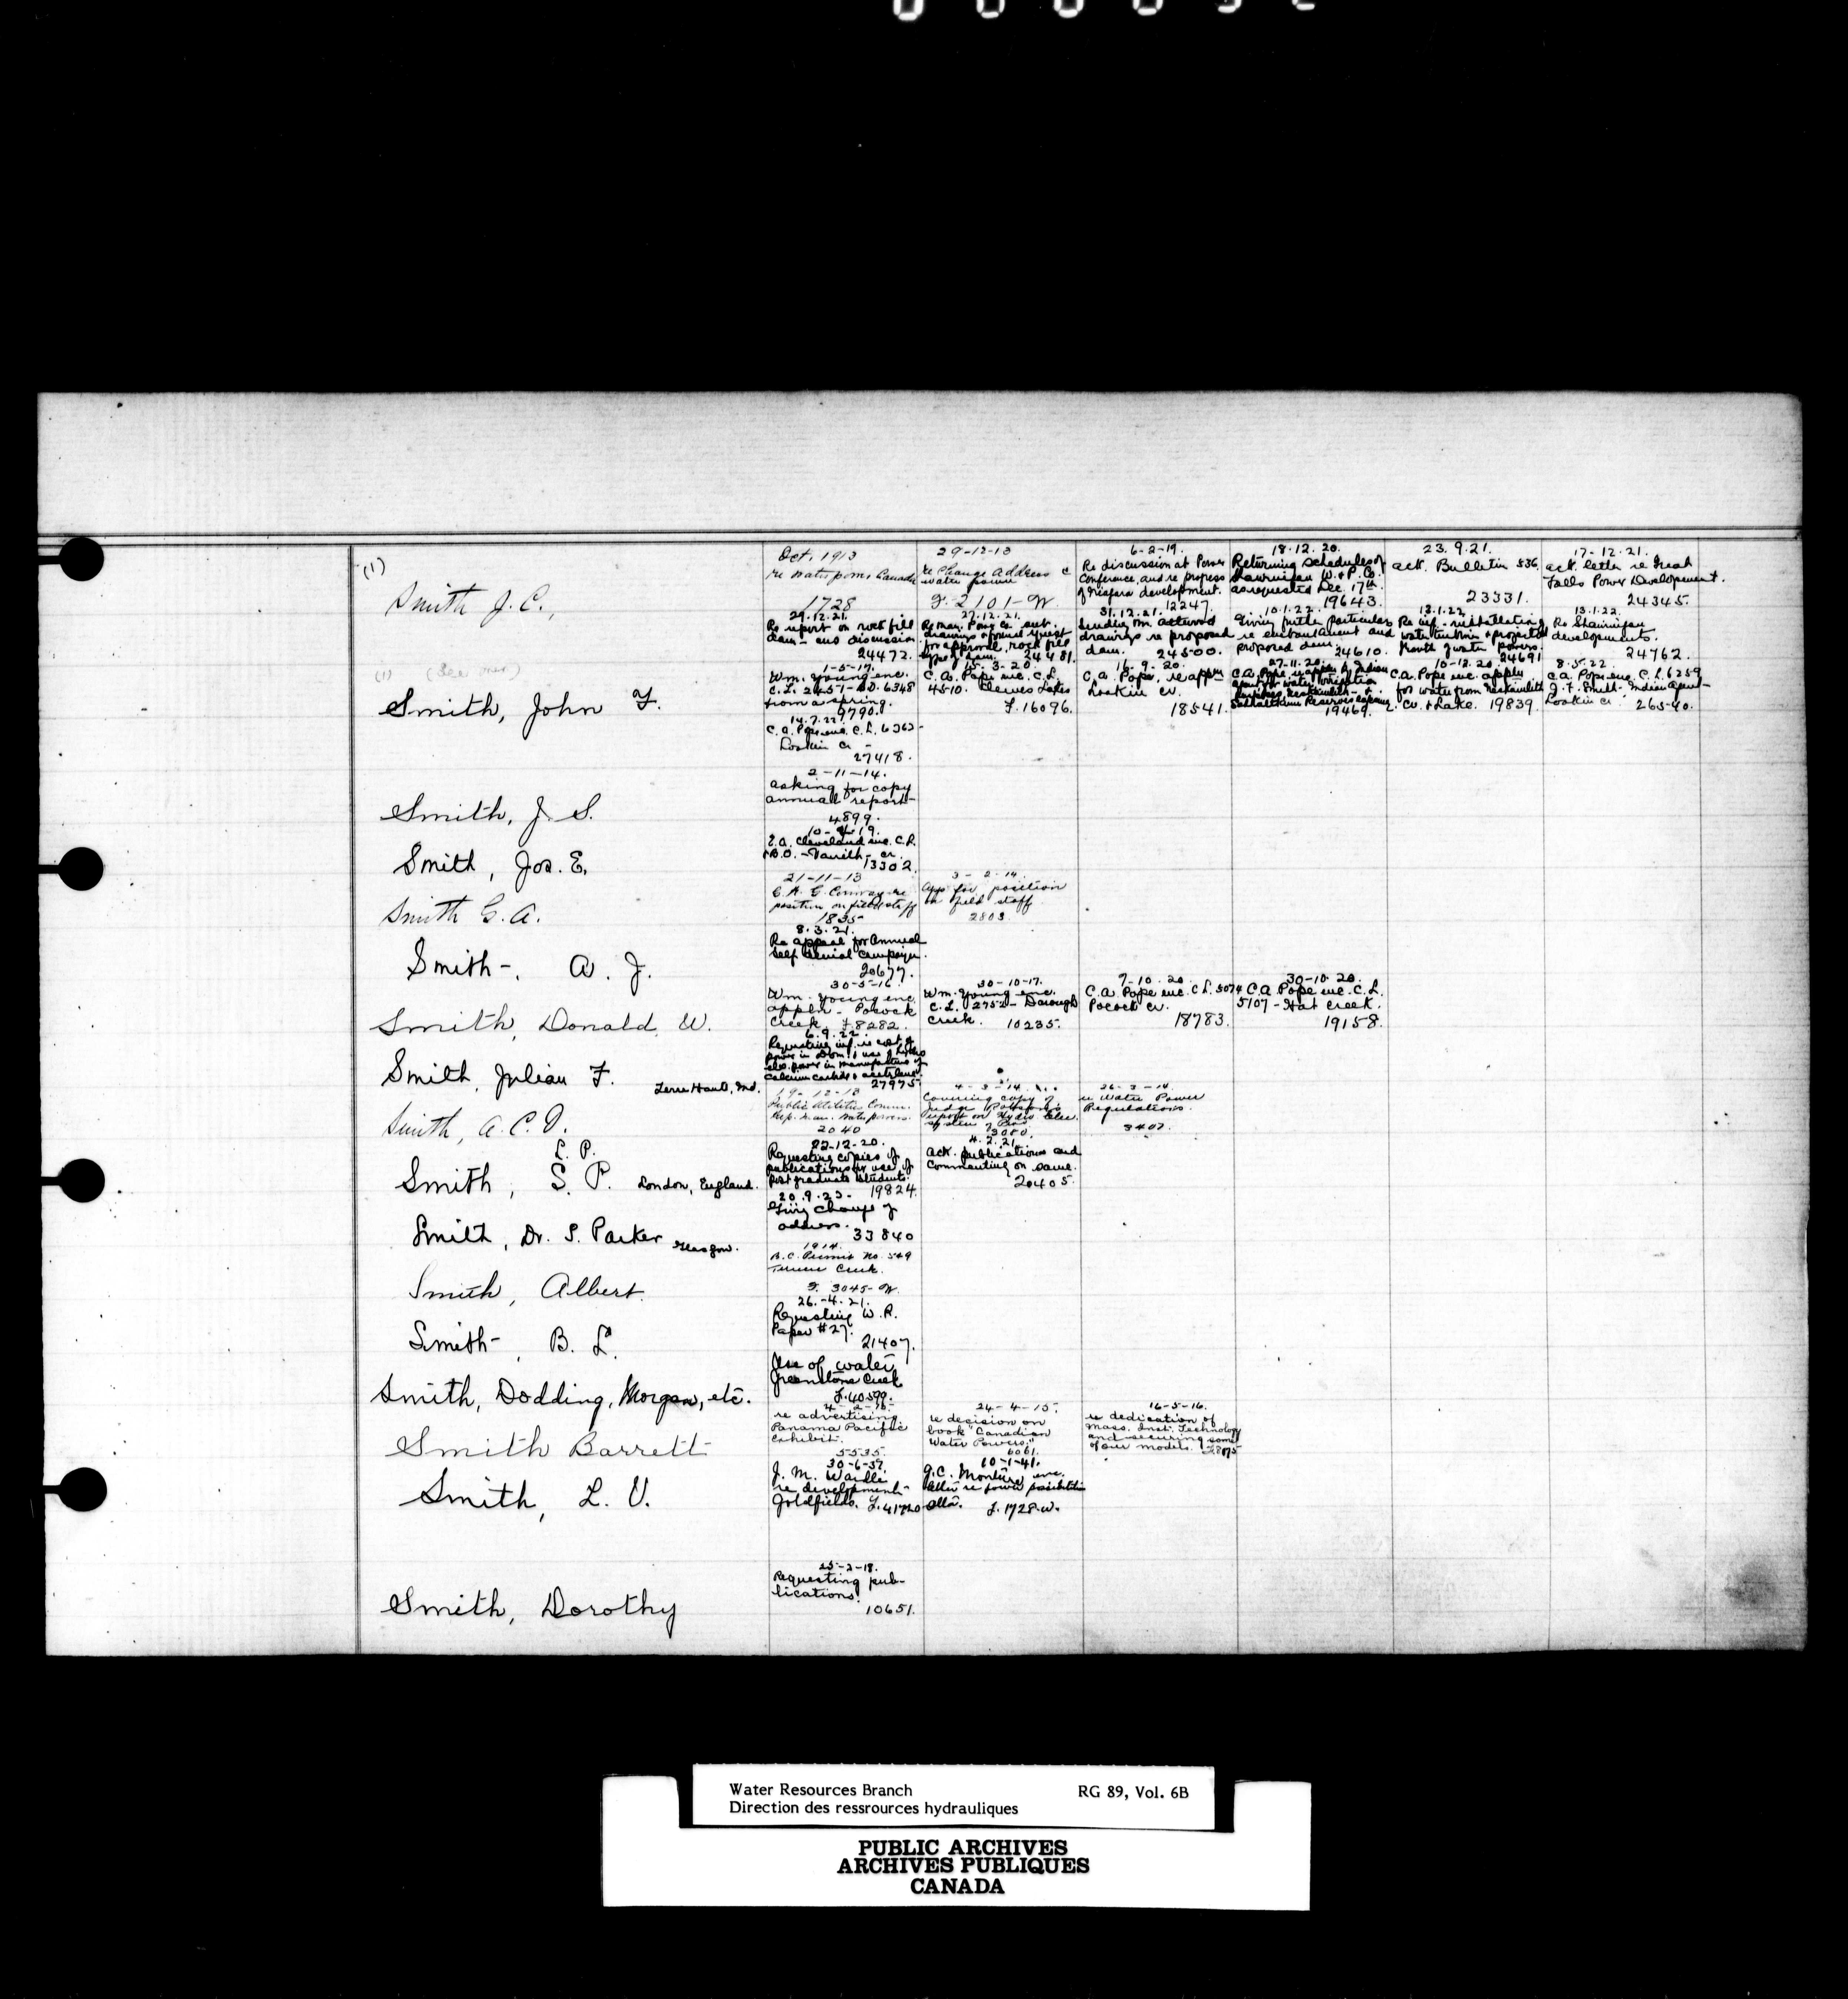 (1)
Smith J. C.,
Oct. 1913
re Water powers Canada
1728
29-12-13
re Change Address
water power
F. 2101-W
6-2-19.
Re discussion at Power
Conference, and re progress
of Niagara development.
12247.
18.12.20.
Returning Schedules of
Shawinigan W. & P. Co.
as requested Dec. 17th
19643.
23.9.21.
ack. Bulletin 536.
23331.
17-12-21.
ack. letter re Great
Falls Power Development.
24345.
29.12.21.
Re report on rock fill
dam - and discussion
24472.
27.12.21.
Re Man. Power Co. sub.
drawings & formal request
for approval, rock fill
type dam. 24481.
31.12.21.
Sending on altered
drawings re proposed
dam. 24500.
10.1.22.
Giving further particulars
re embankment and
proposed dam. 24610.
12.1.22
Re inf.
growth of water powers.
24691
13.1.22.
Re Shawinigan
developments.
24762.
(1) (See over)
Smith, John F.
1-5-17.
Wm. Young enc.
C.L. 2451-
from a spring.
9790.
15.3.20.
C. A. Pope enc. C.L.
4510.
F. 16096.
16.9.20.
C. A. Pope, re appln
Loakin Cr.
18541.
27.11.20.
C.A. Pope re appln by Indian
Agent for water irrigation
19469.
10-12.20
C. A. Pope enc. appln
for water from
Cr. & Lake. 19839.
8.5.22.
C. A. Pope enc. C.L. 6259
J. F. Smith - Indian Agent -
Loakin Cr. 26540.
14.7.22.
C. A. Pope enc. C.L. 6363-
Loakin Cr -
27418.
Smith, J. S.
2-11-14.
asking for copy
annual report-
4899.
Smith, Jos. E.
10-4-19.
E.A. Cleveland enc. C.L.
13302.
Smith G. A.
21-11-13
G. A. G. Conway re
position on field staff
1835
3-2-14.
App for position
on field staff
2803
Smith-, A. J.
8.3.21.
Re appeal for Annual
Self Denial Campaign.
20677.
Smith, Donald W.
30-5-16.
Wm. Young enc.
appln - Pocock
Creek. F8282.
30-10-17.
Wm. Young enc.
C.L. 2752 - Dorough
Creek. 10235.
7-10.20.
C. A. Pope enc. C.L. 5074
Pocock Cr.
18783.
30-10-20.
C. A. Pope enc. C.L.
5107 - Hat Creek.
19158.
Smith, Julian F. Terre Haute, Ind.
6.9.22.
Requesting inf. re cost of
power in Dom. & use of hydro
elec. power in manufacture of
calcium carbide & acetylene.
27975.
Smith, A. C. D.
19-12-13
Public Utilities Comm.
Rep. Man. Water powers.
2040
4-3-14
Covering copy of
Judge Robson's
report on Hydro Elec.
system of Pro.
3080.
26-3-14
re Water Power
Regulations.
3407.
L. P.
Smith, S. P. London, England.
22-12-20.
Requesting copies of
publications for use of
post graduate students.
19824.
4.2.21.
Ack. publications and
commenting on same.
20405.
Smith, Dr. S. Parker Glasgow.
20.9.23-
Giving change of
address.
33840
Smith, Albert.
1914.
B. C. Permit No. 549
Creek.
F. 3045-W.
Smith-, B. L.
26-4.21.
Requesting W. R.
Paper #27.
21407.
Smith, Dodding, Morgan, etc.
Use of water
Greenstone Creek
F. 40599.
Smith Barrett
4-2-15-
re advertising
Panama Pacific
exhibit.
5535.
24-4-15.
re decision on
book "Canadian
Water Powers."
6061.
16-5-16.
re dedication of
Mass. Inst. Technology
and securing some
of our models. F8175
Smith, L. V.
30-6-37.
J. M. Wardle
re development-
Goldfields. F. 41720
10-1-41.
G. C. Monture enc.
letter re power possibilities
F. 1728-W.
Smith, Dorothy
25-2-18.
Requesting pub-
lications.
10651.
Water Resources Branch RG 89, Vol. 6B
Direction des ressources hydrauliques
PUBLIC ARCHIVES
ARCHIVES PUBLIQUES
CANADA